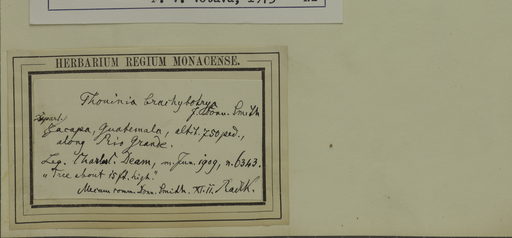 HERBARIUM REGIUM MONACENSE.
Thouinia brachybotrya
J. Donn. Smith
Depart.
Zacapa, Guatemala, altit. 750 ped.,
along Rio Grande.
Leg. Charles C. Deam, m. Jun. 1909, n. 6343.
"Tree about 15 ft. high."
Mecum comm. Donn. Smith. XI. 11. Radlk.